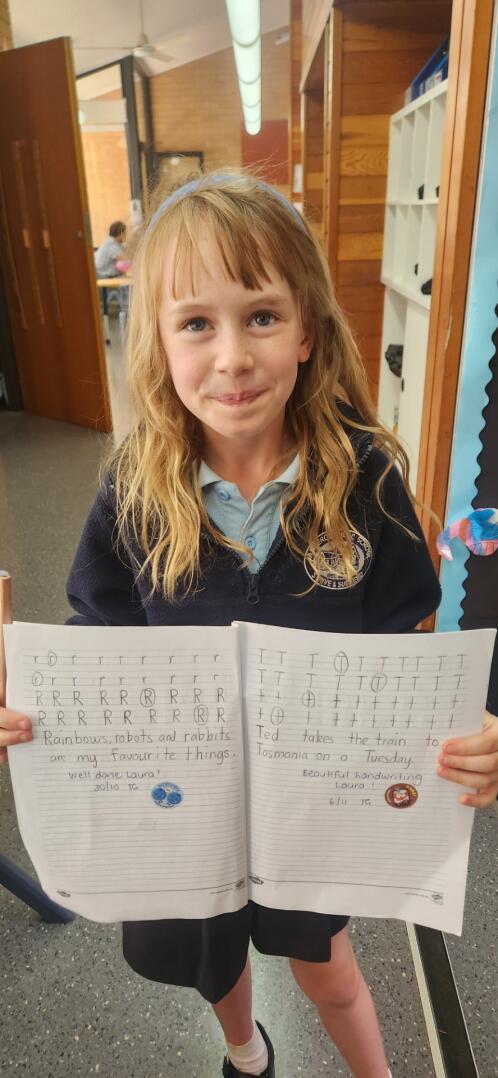 r r r r r r r r r
r r r r r r r r r
R R R R R R R R R
R R R R R R R R R
Rainbows, robots and rabbits
are my favourite things.
Well done Laura!
30/10 TG
T T T T T T T T T
T T T T T T T T T
t t t t t t t t t
t t t t t t t t t
Ted takes the train to
Tasmania on a Tuesday.
Beautiful handwriting
Laura!
6/11 TG